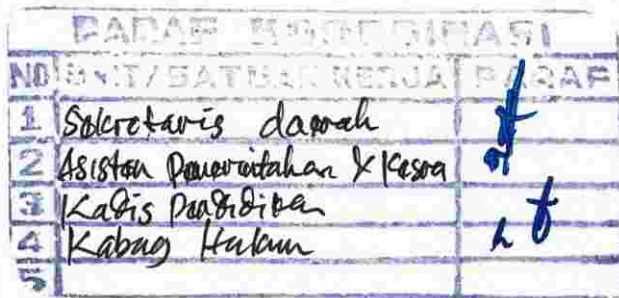 PARAF KOORDINASI
NO UNIT/SATUAN KERJA PARAF
1 Sekretaris daerah
2 Asisten Pemerintahan & Kesra
3 Kadis Pendidikan
4 Kabag Hukum
5